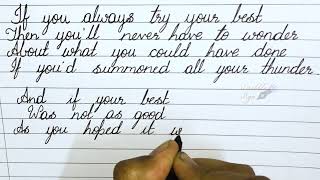 If you always try your best
Then you'll never have to wonder
About what you could have done
If you'd summoned all your thunder
And if your best
Was not as good
As you hoped it w